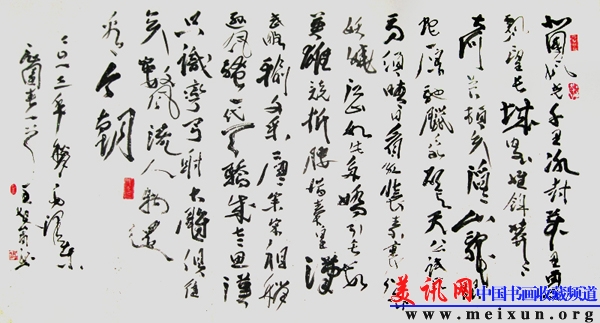 北国风光千里冰封万里雪
飘望长城内外惟余莽莽
大河上下顿失滔滔山舞银
蛇原驰蜡象欲与天公试比
高须晴日看红装素裹分外
妖娆江山如此多娇引无数
英雄竞折腰惜秦皇汉
武略输文采唐宗宋祖稍
逊风骚一代天骄成吉思汗
只识弯弓射大雕俱往
矣数风流人物还
看今朝
二〇一三年 毛泽东
园春
美讯网 中国书画收藏频道
www.meixun.org